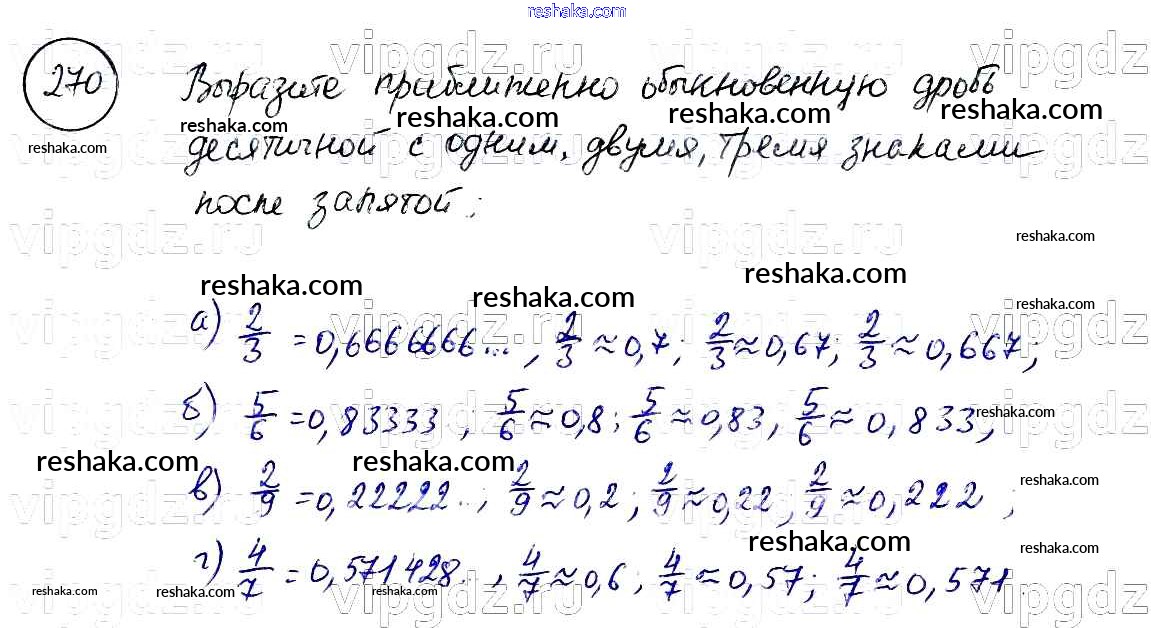 reshaka.com
270 Выразите приближенно обыкновенную дробь
десятичной с одним, двумя, тремя знаками
после запятой:
а) 2/3 = 0,6666666..., 2/3 ≈ 0,7; 2/3 ≈ 0,67; 2/3 ≈ 0,667;
б) 5/6 = 0,83333, 5/6 ≈ 0,8; 5/6 ≈ 0,83, 5/6 ≈ 0,833,
в) 2/9 = 0,22222.., 2/9 ≈ 0,2; 2/9 ≈ 0,22, 2/9 ≈ 0,222;
г) 4/7 = 0,571428.., 4/7 ≈ 0,6; 4/7 ≈ 0,57; 4/7 ≈ 0,571.
vipgdz.ru
reshaka.com